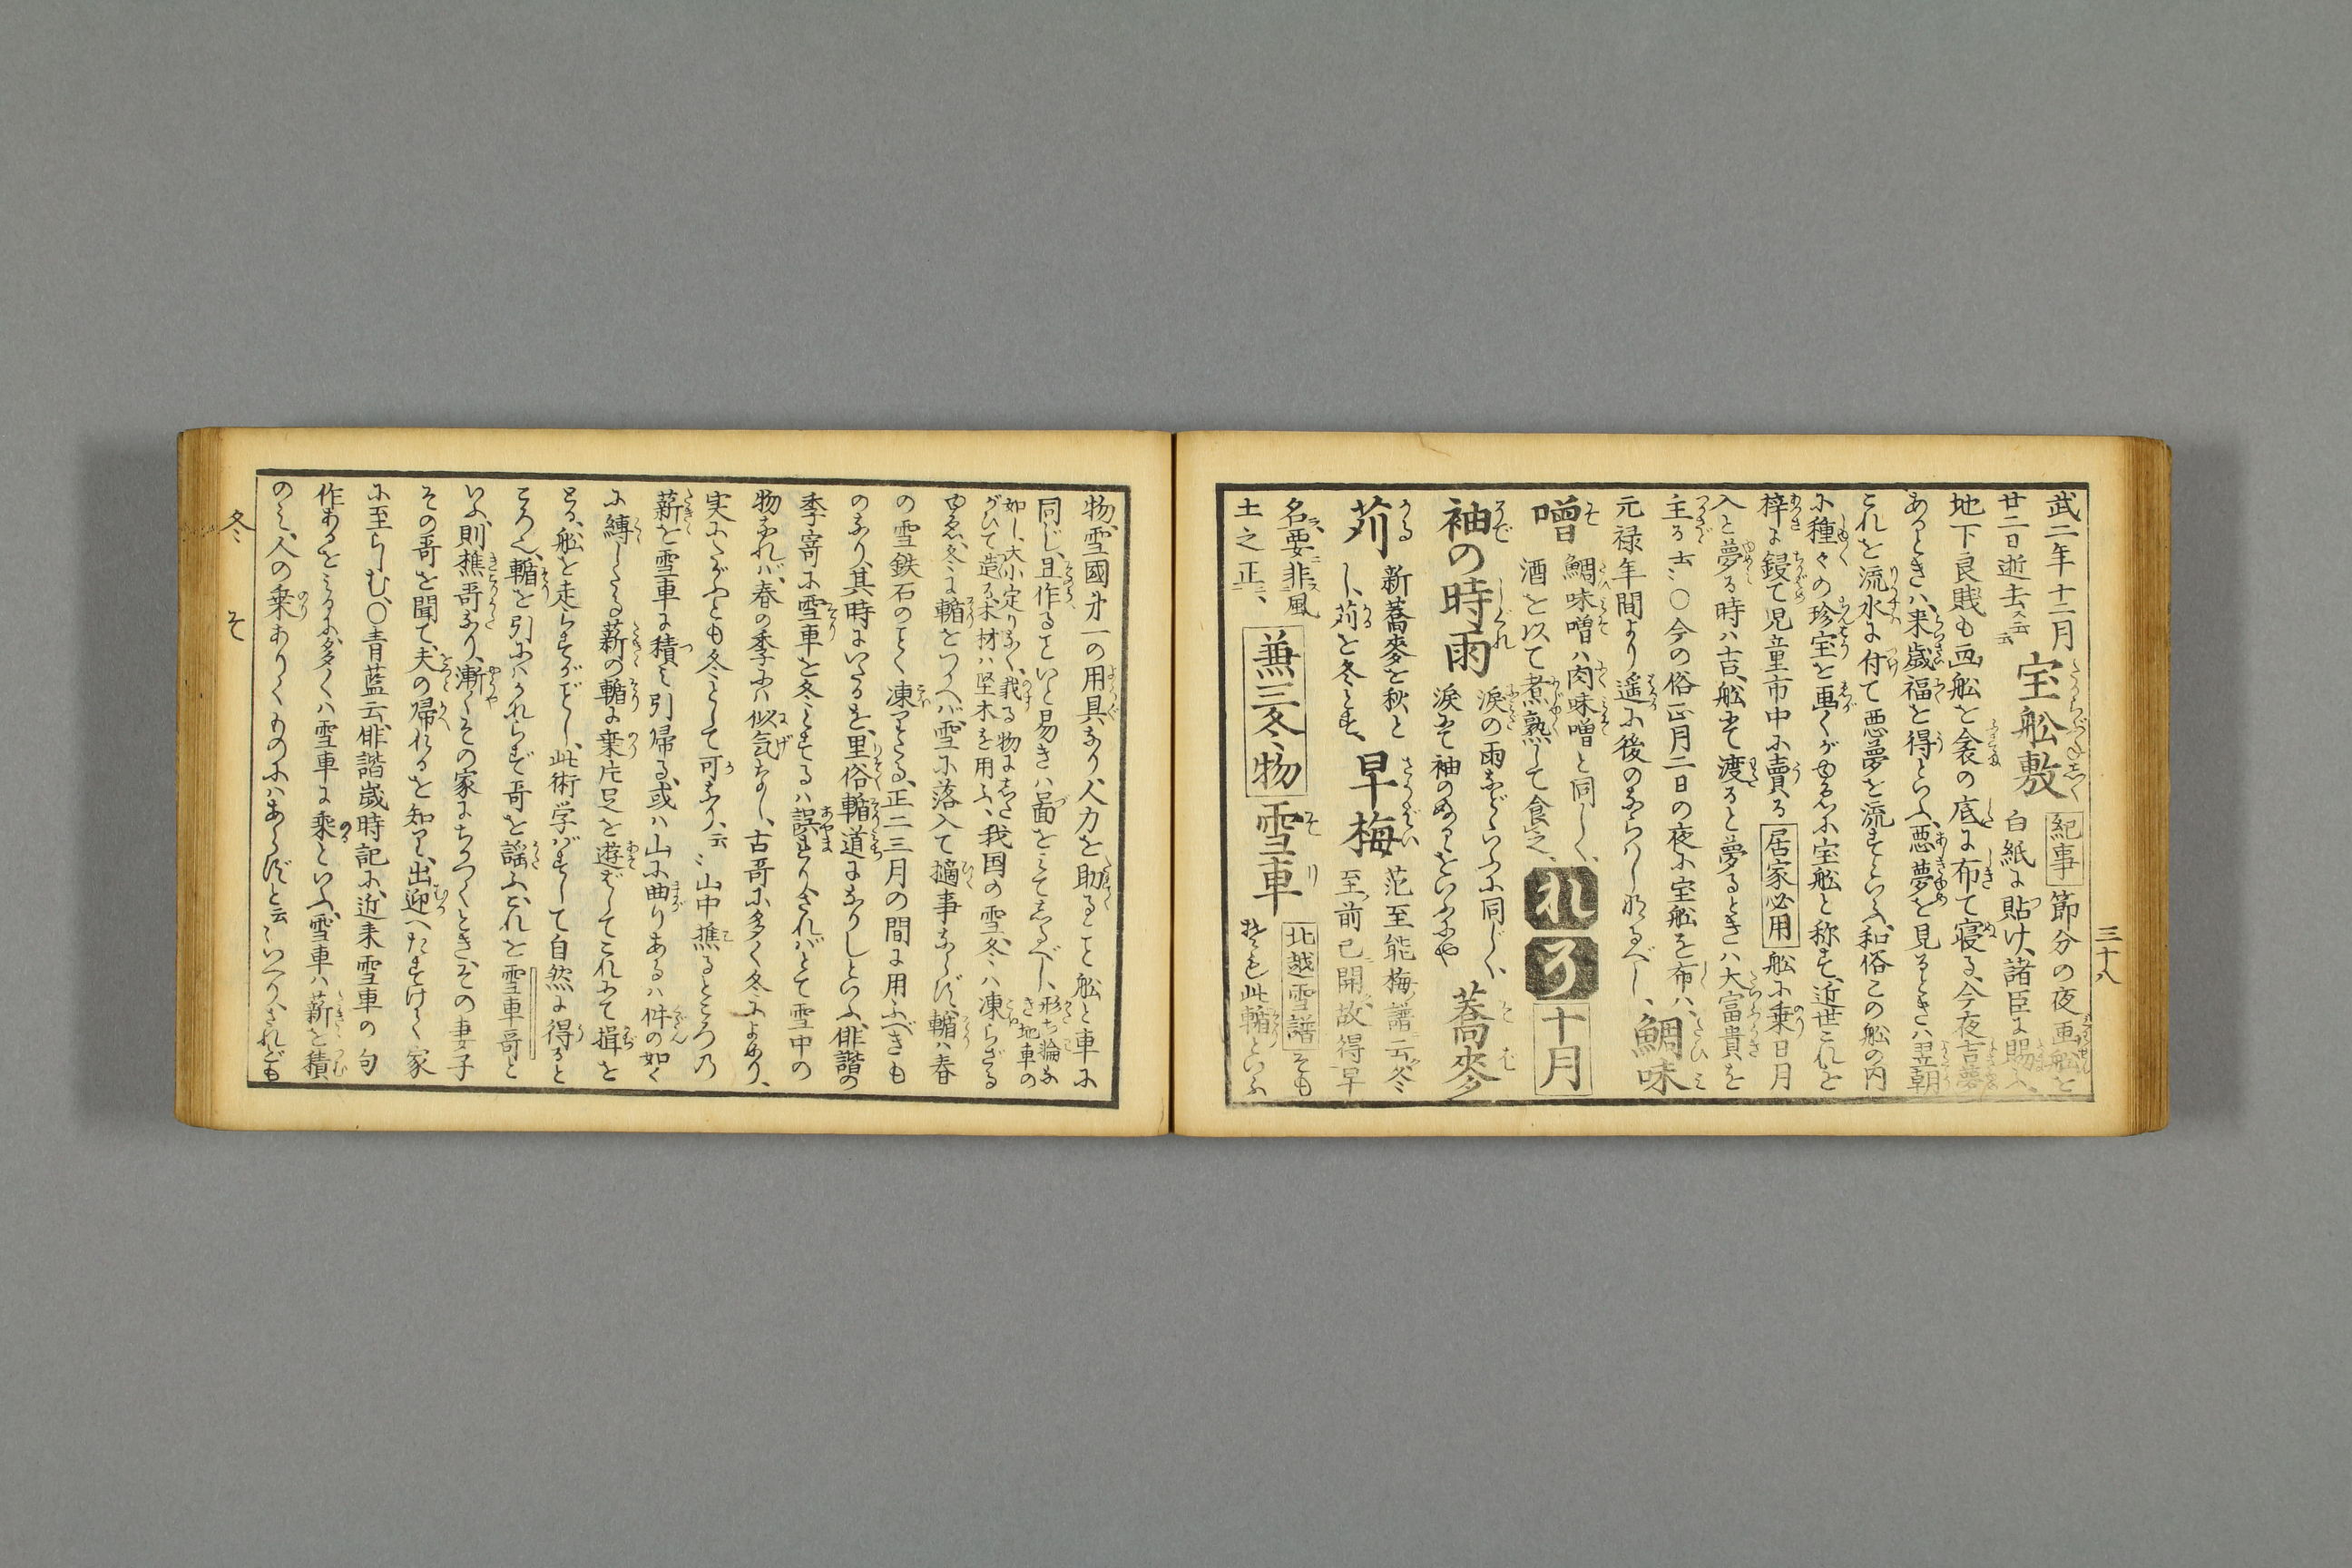 三十八
武二年十二月
廿二日逝去云云
宝舩敷
紀事 節分の夜画舩を
白紙に貼け、諸臣に賜ふ、
地下良賎も画舩を衾の底に布て寝る、今夜吉夢
あるときハ、来歳福を得といふ、悪夢を見るときハ、翌朝
これを流水に付て悪夢を流すといふ、和俗この舩の内
に種々の珍宝を画くがゆゑに宝舩と称す、近世これを
梓に鋟て児童市中に賣る 居家必用 舩に乗日月
入と夢る時ハ吉、舩にて渡ると夢るときハ大富貴を
主る云々○今の俗正月二日の夜に宝舩を布ハ、
元禄年間より遥に後のならハしなるべし、鯛味
噌 鯛味噌ハ肉味噌と同じく、
酒を以て煮熟して食之、
れ そ 十月
袖の時雨 涙の雨などいふに同じく、
涙にて袖のぬるをいふにや
蕎麥
苅 新蕎麥を秋と
し、苅を冬とす、
早梅 范至能梅譜云冬
至前已開故得早
名要非風
土之正、
兼三冬物 雪車 北越雪譜 そも
そも此轌といふ
物、雪國第一の用具なり、人力を助ること舩と車に
同じ、且作ることいと易きハ啚を見てしるべし、形ち輪なき地車の
如し、大小定りなく、載る物にしたがひて造る、木材ハ堅木を用ふ、我国の雪、冬ハ凍らざる
ゆゑ、冬に轌をつかへバ雪に落入て擿事ならず、轌ハ春
の雪鉄石のごとく凍りたる、正二三月の間に用ふべきも
のなり、其時にいたるを、里俗轌道になりしといふ、俳諧の
季寄に雪車を冬とするハ誤れり、されバとて雪中の
物なれバ、春の季にハ似気なし、古哥に多く冬によめり、
実にたがふとも冬として可なり、云々山中樵るところの
薪を雪車に積み引帰る、或ハ山に曲りあるハ件の如く
に縛したる薪の轌に乗、片足を遊バしてこれにて揖を
とる、舩を走らすがごとし、此術学バずして自然に得ると
ころ也、轌を引にハかならず哥を謡ふ、これを雪車哥と
いふ、則樵哥なり、漸くその家にちかづくとき、その妻子
その哥を聞て、夫の帰れるを知り、出迎へたすけて家
に至らしむ、○青藍云俳諧歳時記に、近来雪車の句
作あるをミるに、多くハ雪車に乗といふ、雪車ハ薪を積
のミ、人の乗ありくものにハあらずと云々いへり、されども
冬 そ